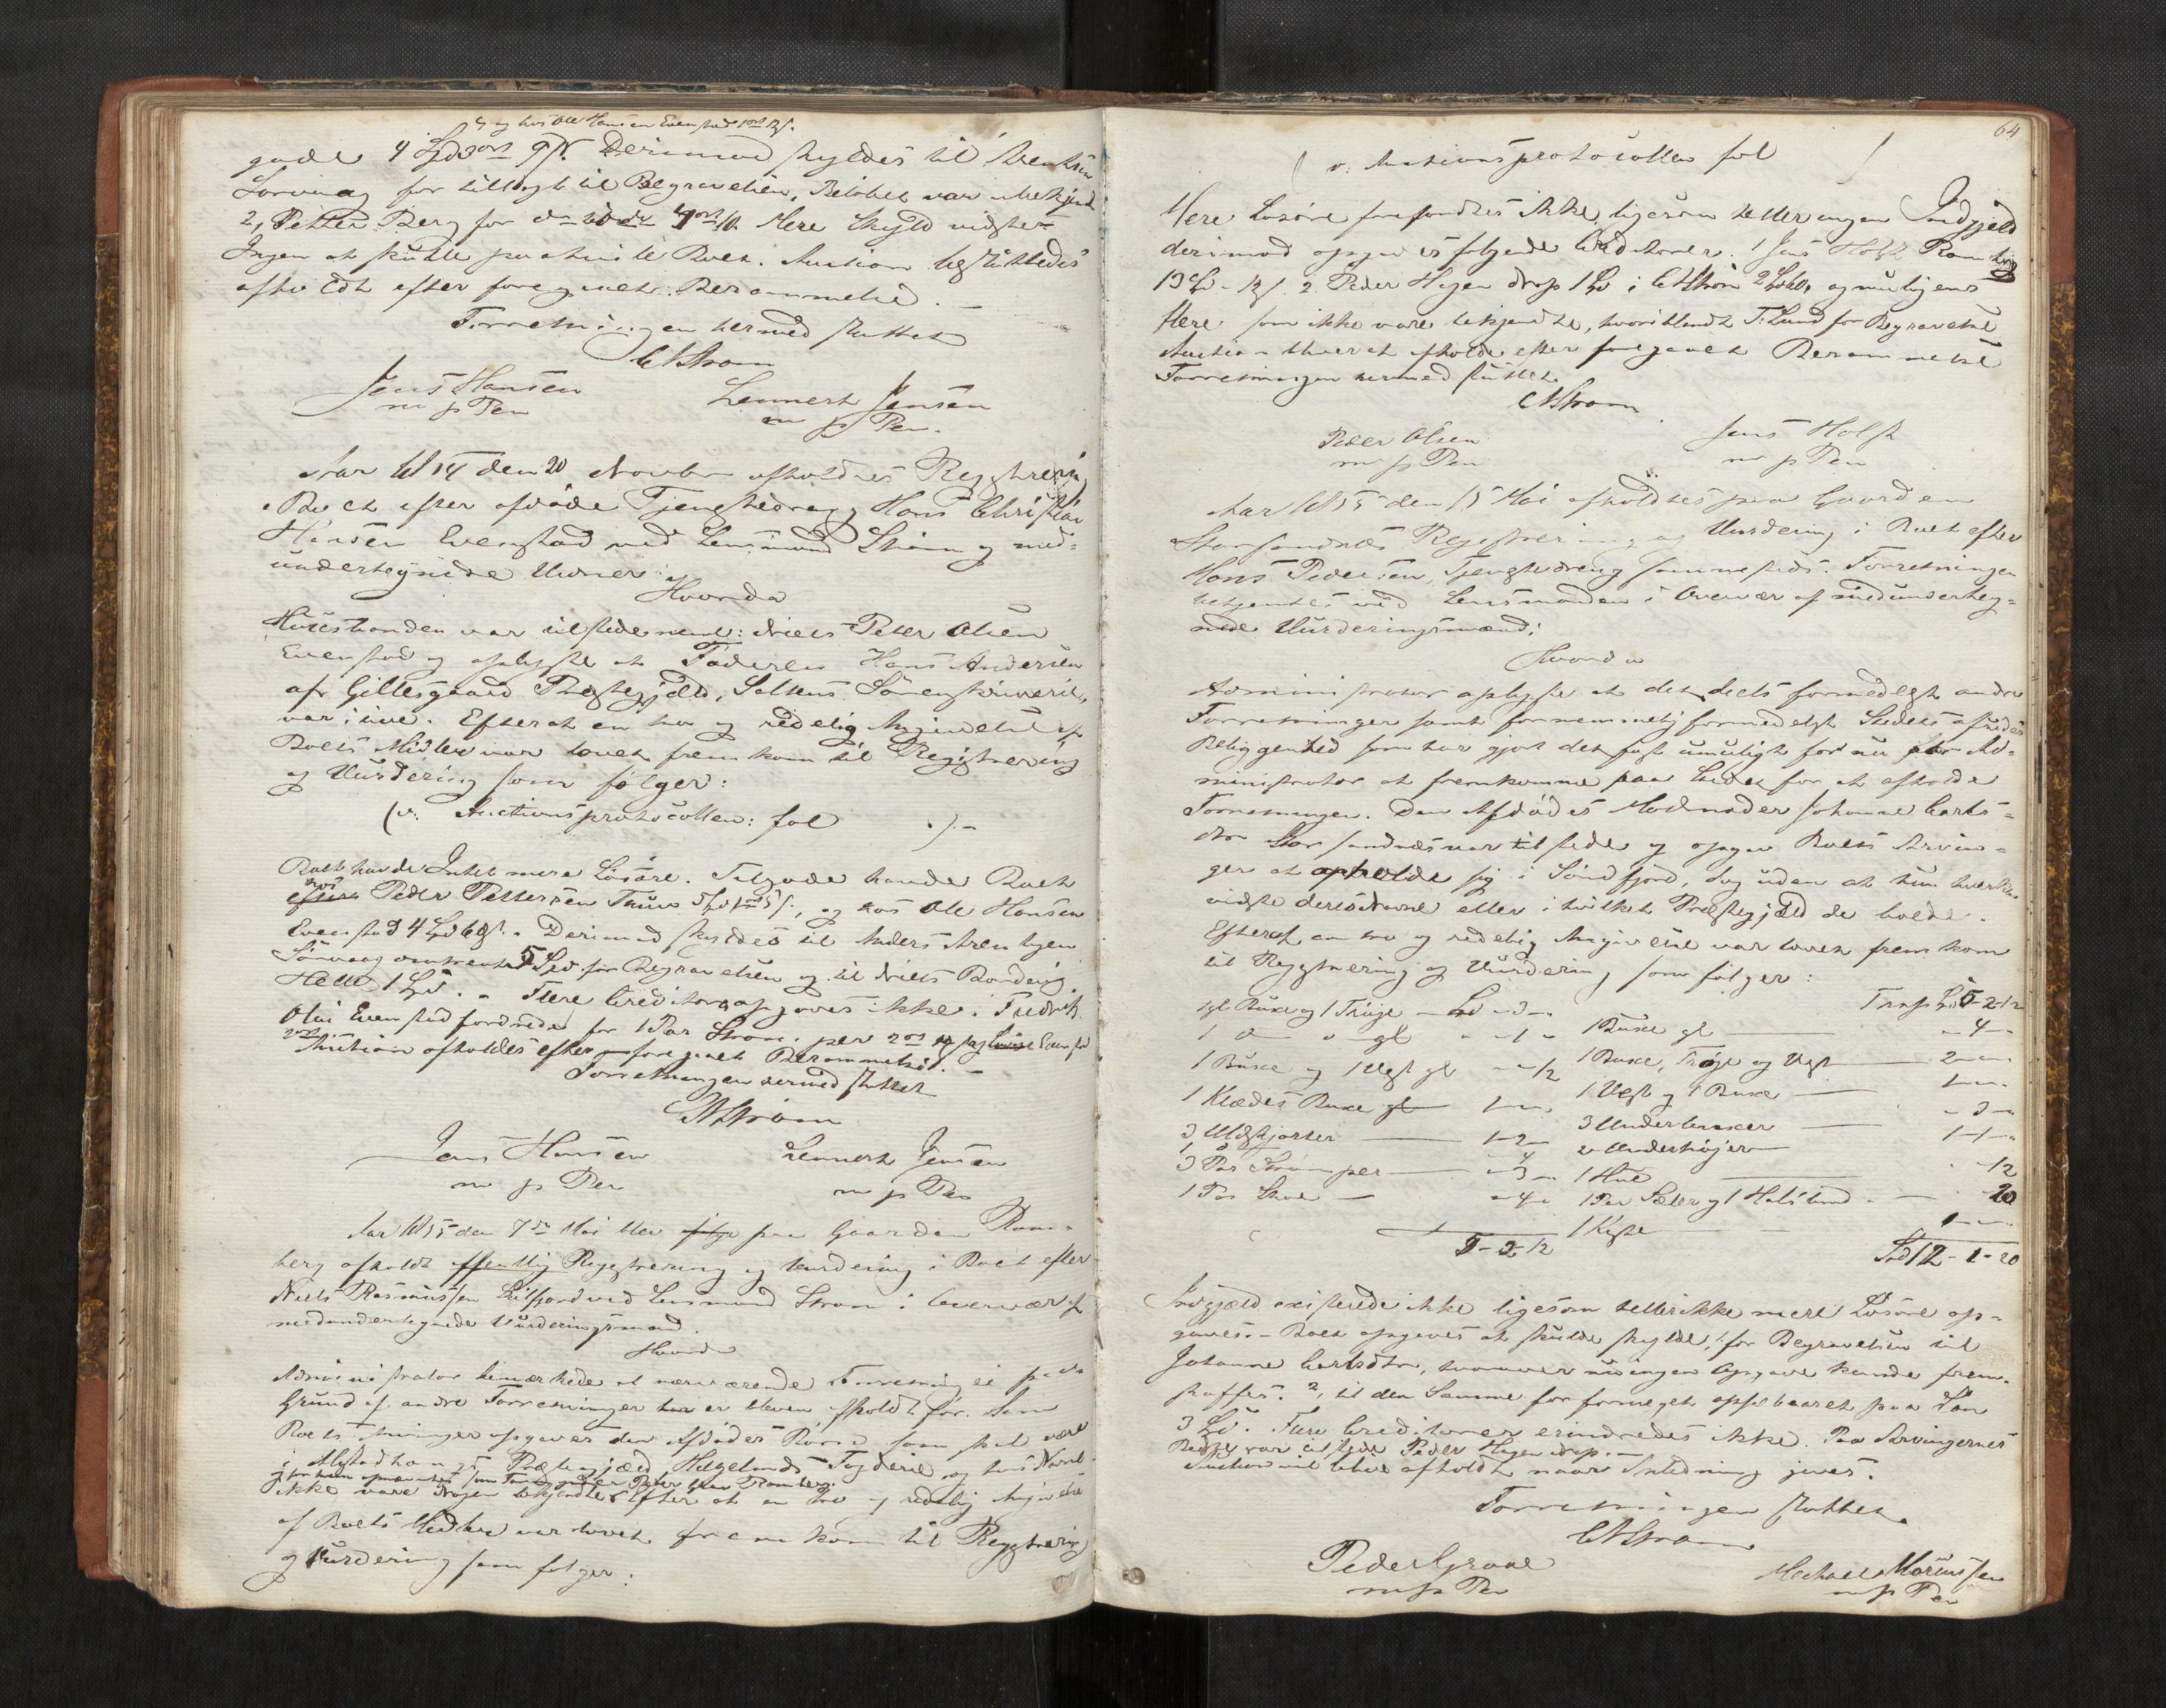 og hos Ole Hansen Evenstad
gode 4 Spd 3 ort 9 s. Derimod skyldes til
for tillagt til Begravelsen, Beløbet var ubekjend
2, Petter Berg for Mere Skyld vidste
Ingen at skulle paahvile Boet. Auction
afholdt efter foregaaet Berammelse. —
Forretningen hermed sluttet
CAStrøm
Jens Hansen Lennert Jensen
m p Pen m p Pen.
Aar 1854 den 20 Novbr afholdtes Registrering
i Boet efter afdøde Tjenestedreng Hans Christian
Hansen Evenstad ved Lensmand Strøm og med-
undertegnede Vidner:
Hvorda
Huusbonden var tilstede neml: Niels Peter Olsen
Evenstad og oplyste at Faderen Hans Andersen
af Gillesgaard Præstegjæld, Saltens Sorenskriverie,
var i live. Efterat en tro og redelig Angivelse af
Boets Midler var lovet, fremkom til Registrering
og Vurdering som følger:
(v: Auctionsprotocollen: fol ./. -
Boet havde Intet mere Løsøre. Tilgode havde Boet
hos Peder Pettersen og hos Ole Hansen
Evenstad 4 Spd Derimod skyldes til Anders Arentsen
Sørvaag omtrent 5 Spd for Begravelsen og til Niels
Helle 1 Spd. - Flere Creditorer opgaves ikke. Fredrik
Olai Evenstad fordrede for 1 Par
Auction afholdes efter foregaaet Berammelse. —
Forretningen hermed sluttet
CAStrøm
Jens Hansen Lennert Jensen
m p Pen m p Pen
Aar 1855 den 7de Mai blev paa Gaarden Ram-
berg afholdt Registrering og Vurdering i Boet efter
Niels Rasmussen ved Lensmand Strøm i Overvær af
medundertegnede Vurderingsmænd.
Hvorda
Administrator bemærkede at nærværende Forretning ei paa
Grund af andre Forretninger er bleven afholdt før. Som
Boets Arvinger opgaves den Afdødes som skal være
i Alstadhaugs Præstegjæld Helgelands Fogderie og hvis Navn
ikke vare Nogen bekjendte. Efter at en tro og redelig Angivelse
af Boets Midler var lovet fremkom til Registrering
og Vurdering som følger:
64
( v: Auctionsprotocollen fol /
Mere Løsøre forefandtes ikke, ligesom heller ingen Indgjeld
derimod opgaves følgende Creditorer. 1 Jens Holst Ramberg
13 Spd - 2. Peder Hagen 1 Spd; CAStrøm 2 Spd og muligens
flere som ikke vare bekjendte, hvoriblandt T. Lund for Begravelse
Auction bliver at afholde efter foregaaet Berammelse
Forretningen hermed sluttet.
CAStrøm
Peder Olsen Jens Holst
m p Pen m p Pen
Aar 1855 den 15 Mai afholdtes paa Gaarden
Storsandnæs Registrering og Vurdering i Boet efter
Hans Pedersen, Tjenestedreng sammesteds. Forretningen
betjentes ved Lensmanden i Overvær af medunderteg-
nede Vurderingsmænd;
Hvorda
Administrator oplyste at det deels formedelst andre
Forretninger samt fornemmelig formedelst Stedets afsides
Beliggenhed som har gjort det fast umuligt før nu for Ad-
ministrator at fremkomme paa Stedet for at afholde
Forretningen. Den Afdødes Madmoder Johanne Carls-
dtr Storsandnæs var tilstede og opgav Boets Arvin-
ger at opholde sig i Søndfjord, dog uden at hun hverken
vidste deres Navne eller i hvilket Præstegjæld de boede.
Efterat en tro og redelig Angivelse var lovet fremkom
til Registrering og Vurdering som følger:
1 gl Buxe og 1 Trøje — Spd - 3 - Transp Spd 5-2-12
1 do " gl " - 1 - 1 Buxe gl — - 4 -
1 Buxe og 1 Vest gl — - 12 1 Buxe, Trøje og Vest — 2 - -
1 Klædes Buxe gl 1 - - 1 Vest og 1 Buxe — 1 - -
3 Uldskjorter — 1-2- 3 Underbuxer — - 3 -
2 Undertrøjer — 1-1-
3 Par Strømper — - 3 - 1 Hue — - 12
1 Par Skoe — - 4 - 1 Par Sæler og 1 Halsbind — 20
1 Kiste — 1 - -
5 - 2 - 12 Spd 12 - 1 - 20
Indgjæld existerede ikke ligesom heller ikke mere Løsøre op-
gaves. - Boet opgaves at skulde skylde 1, for Begravelsen til
Johanne Carlsdtr, hvorover nu ingen Opgave kunde frem-
skaffes. 2, til den Samme for formeget oppebaaret paa Løn
3 Spd. Flere Creditorer erindredes ikke. Paa Arvingernes
var tilstede Peder Hagen
Auction vil blive afholdt naar Anledning gives.
Forretningen sluttet.
CAStrøm
Peder Graae Michael Mariussen
m p Pen m p Pen